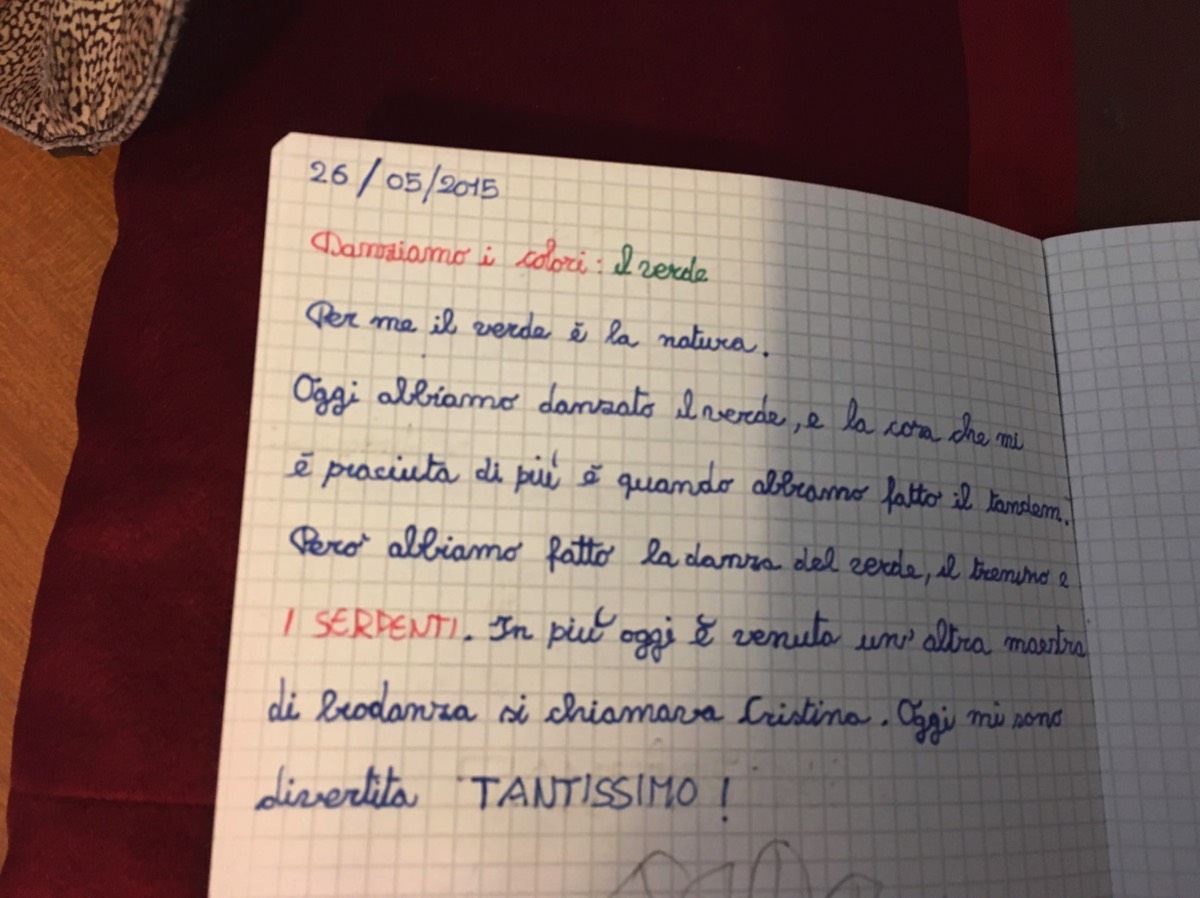 26/05/2015
Danziamo i colori: Il verde
Per me il verde è la natura.
Oggi abbiamo danzato il verde, e la cosa che mi
è piaciuta di più è quando abbiamo fatto il tandem.
Però abbiamo fatto la danza del verde, il trenino e
I SERPENTI. In più oggi è venuta un'altra maestra
di biodanza si chiamava Cristina. Oggi mi sono
divertita TANTISSIMO!